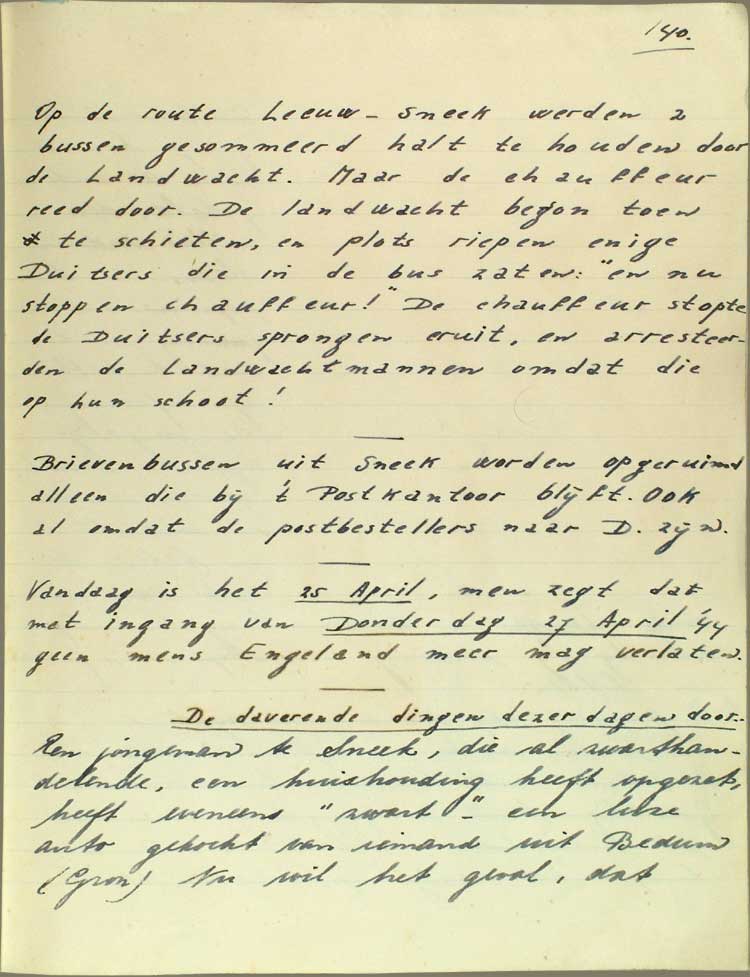 140.
Op de route Leeuw - Sneek werden 2
bussen gesommeerd halt te houden door
de Landwacht. Maar de chauffeur
reed door. De landwacht begon toen
te schieten, en plots riepen enige
Duitsers die in de bus zaten: "en nu
stoppen chauffeur!" De chauffeur stopte
de Duitsers sprongen eruit, en arresteer-
den de Landwachtmannen omdat die
op hun schoot!
Brievenbussen uit Sneek worden opgeruimd
alleen die bij 't Postkantoor blijft. Ook
al omdat de postbestellers naar D. zijn.
Vandaag is het 25 April, men zegt dat
met ingang van Donderdag 27 April '44
geen mens Engeland meer mag verlaten.
De daverende dingen dezer dagen door.
Een jongeman te Sneek, die al zwarthan-
delende, een huishouding heeft opgezet,
heeft eveneens "zwart" een luxe
auto gekocht van iemand uit Bedum
(Gron) Nu wil het geval, dat